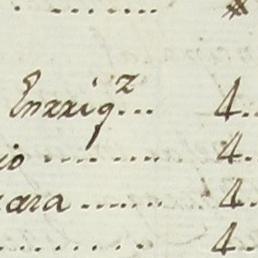 Enrriqz... 4..
io ........ 4..
ara ....... 4..
......... 4..